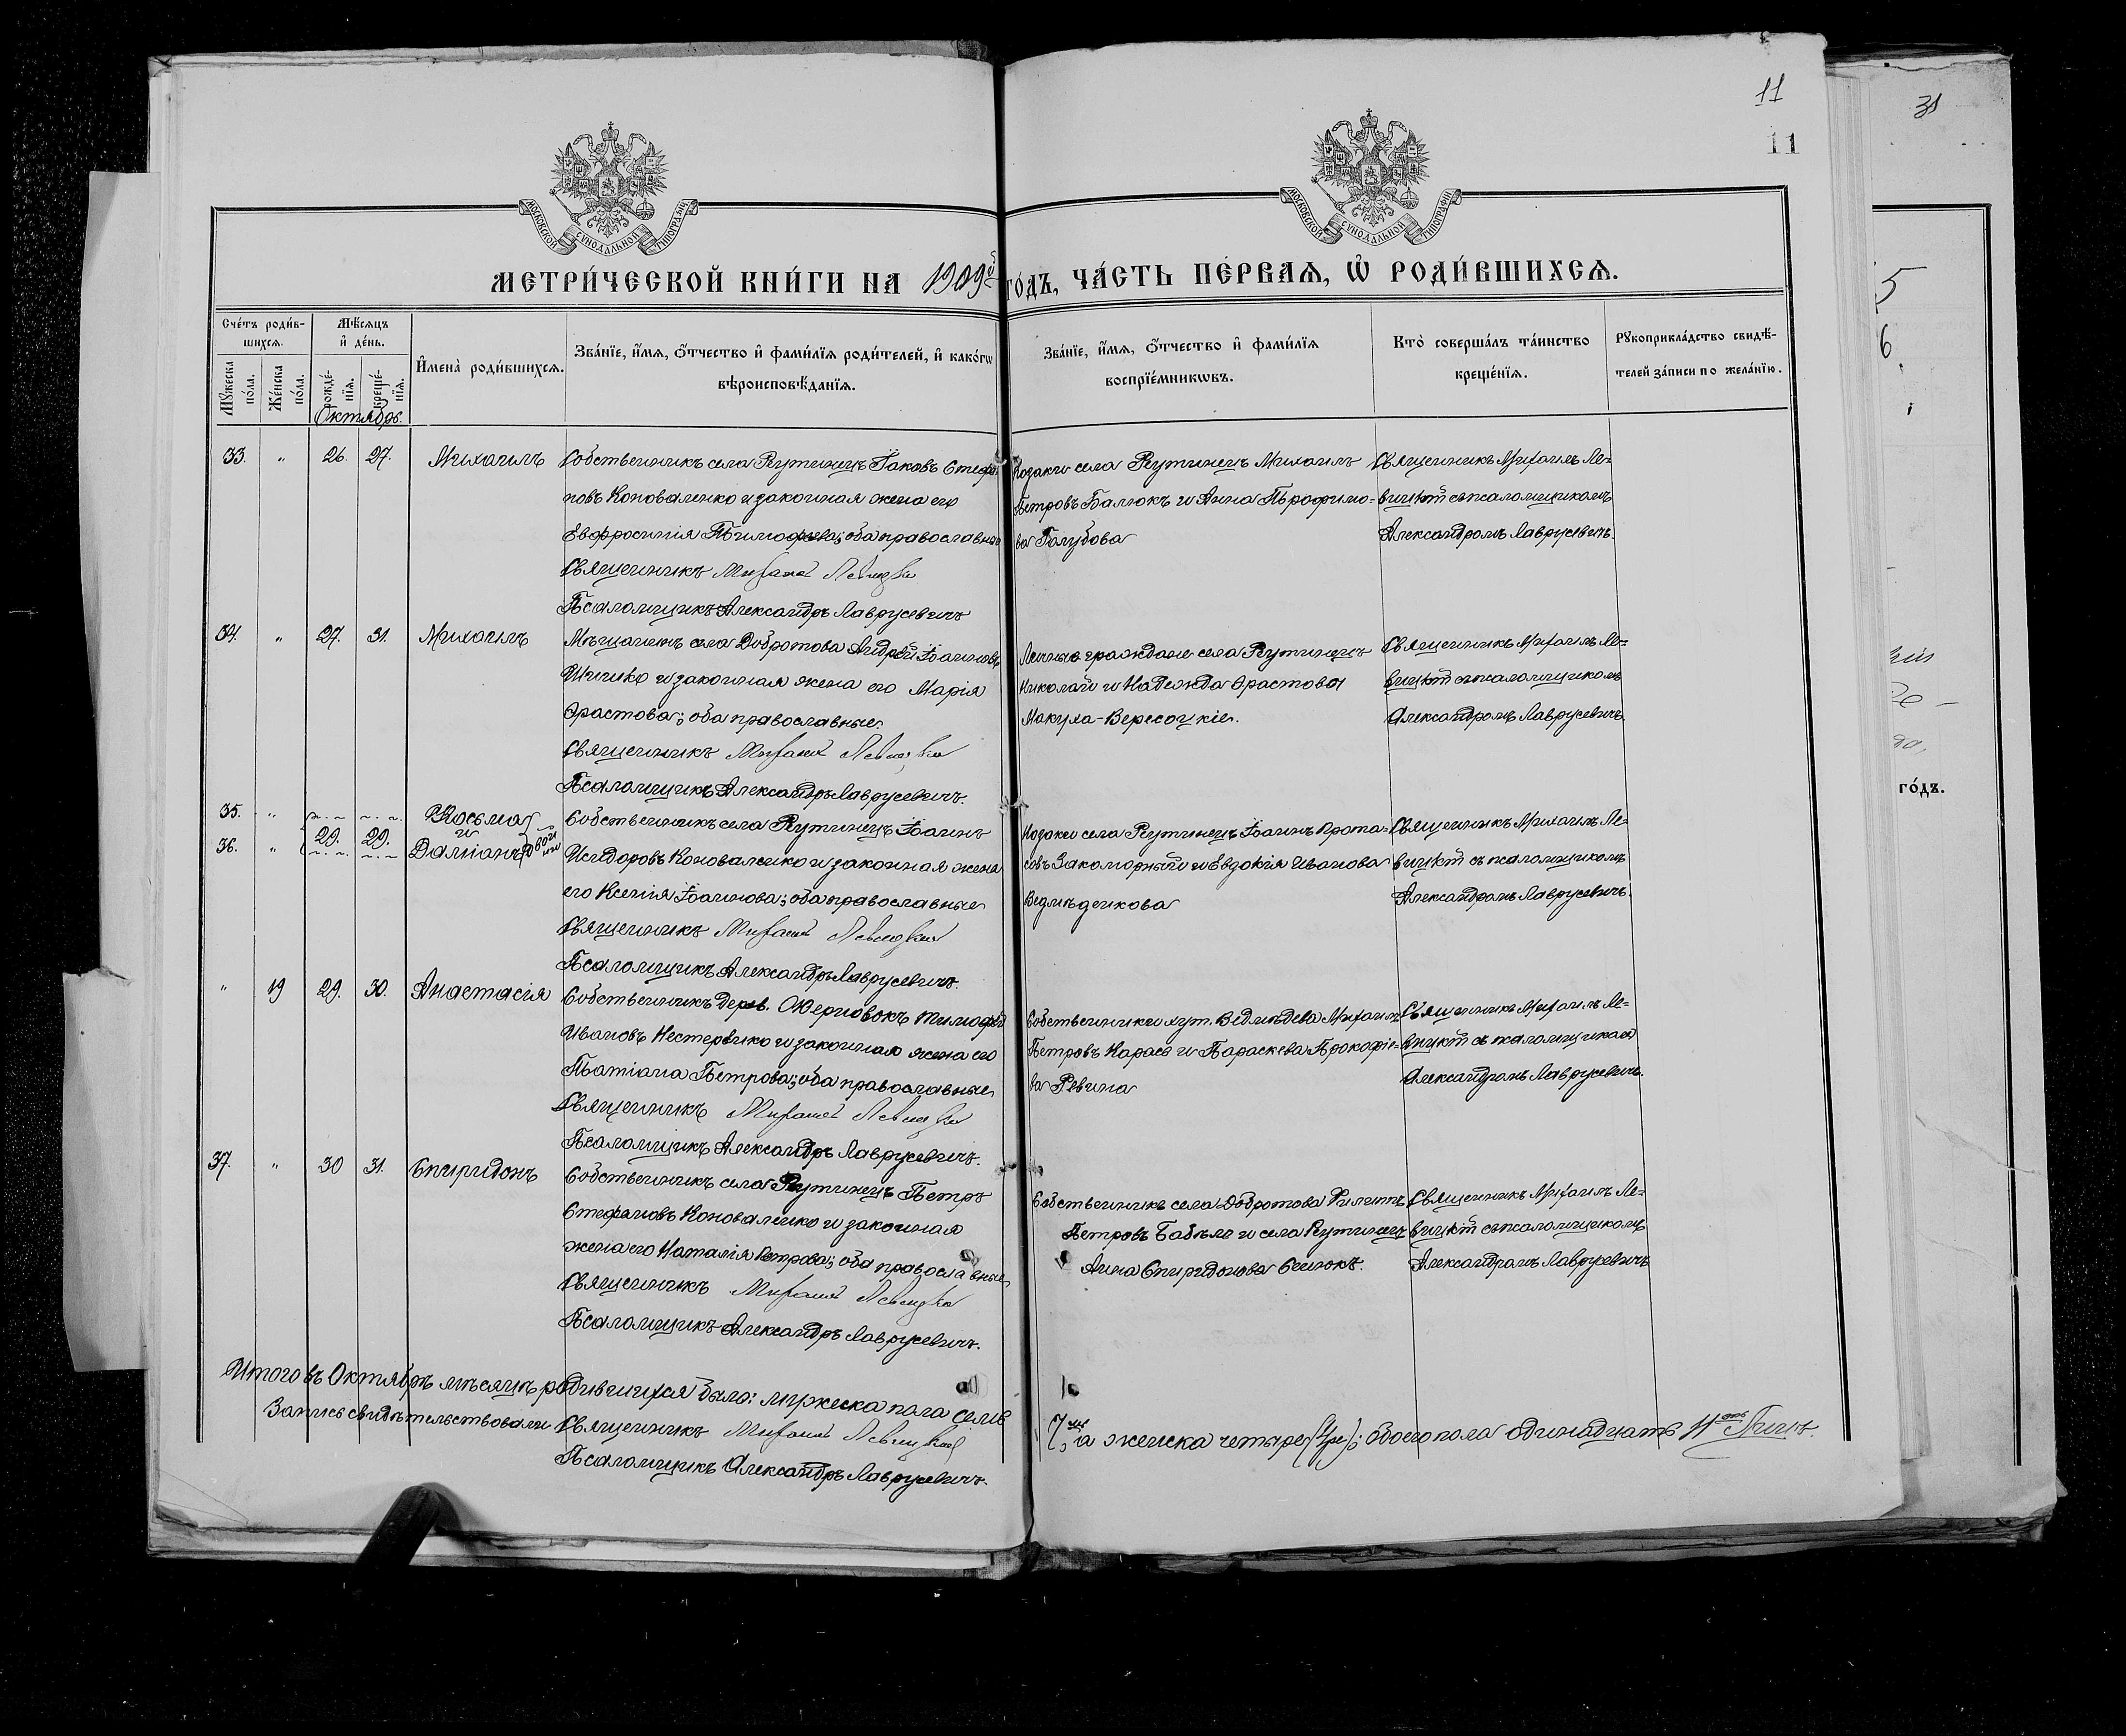 11
11
31
МОСКОВСКОЙ СѴНОДАЛЬНОЙ ТИПОГРАФІИ
МОСКОВСКОЙ СѴНОДАЛЬНОЙ ТИПОГРАФІИ
МЕТРИ́ЧЕСКОЙ КНИ́ГИ НА 1909й ГО́ДЪ, ЧА́СТЬ ПЕ́РВАѦ, Ѿ РОДИ́ВШИХСѦ.
Счéтъ роди́в-
шихсѧ.
Мѣ́сѧцъ
и҆ де́нь.
Мꙋ́жеска по́ла.
Же́нска по́ла.
рожде́-нїѧ.
креще́-нїѧ.
И҆мена̀ роди́вшихсѧ.
Зва́нїе, и҆́мѧ, ѻ҆́тчество и҆ фами́лїѧ роди́телей, и҆ како́гѡ
вѣроисповѣ́данїѧ.
Зва́нїе, и҆́мѧ, ѻ҆́тчество и҆ фами́лїѧ
воспрїе́мникѡвъ.
Кто̀ соверша́лъ та́инство
креще́нїѧ.
Рꙋкоприкла́дство свидѣ́-
телей за́писи по жела́нїю.
Октябрь.
33. " 26. 27. Михаилъ
Собственникъ села Рутинецъ Іаковъ Стефа-
новъ Коноваленко и законная жена его
Евфросинія Тимофеева; оба православные
Священникъ Михаилъ Левицкій
Псаломщикъ Александръ Лаврусевичъ
Козаки села Рутинецъ Михаилъ
Петровъ Балюкъ и Анна Трофимо-
ва Голубова
Священникъ Михаилъ Ле-
вицкій съ псаломщикомъ
Александромъ Лаврусевичъ.
34. " 27. 31. Михаилъ
Мѣщанинъ села Добротова Андрей Іоанновъ
и законная жена его Марія
Ерастова; оба православные
Священникъ Михаилъ Левицкій
Псаломщикъ Александръ Лаврусевичъ.
Личные граждане села Рутинецъ
Николай и Надежда Ерастовы
Макуха-Вересоцкіе.
Священникъ Михаилъ Ле-
вицкій съ псаломщикомъ
Александромъ Лаврусевичъ.
35. " Косьма
и
36. " 29. 29. Даміанъ двойни
Собственникъ села Рутинецъ Іоаннъ
Исидоровъ Коноваленко и законная жена
его Ксенія Іоаннова; оба православные
Священникъ Михаилъ Левицкій
Псаломщикъ Александръ Лаврусевичъ.
Козаки села Рутинецъ Іоаннъ Прота-
совъ Закоморный и Евдокія Иванова
Ведмѣденкова
Священникъ Михаилъ Ле-
вицкій съ псаломщикомъ
Александромъ Лаврусевичъ.
" 19 29. 30. Анастасія
Собственникъ дерев. Жерновокъ Тимофей
Ивановъ Нестеренко и законная жена его
Татіана Петрова; оба православные
Священникъ Михаилъ Левицкій
Псаломщикъ Александръ Лаврусевичъ.
Собственники хут. Ведмѣдева Михаилъ
Петровъ Карась и Параскева Прокофіе-
ва Ревина
Священникъ Михаилъ Ле-
вицкій съ псаломщикомъ
Александромъ Лаврусевичъ.
37. " 30 31. Спиридонъ
Собственникъ села Рутинецъ Петръ
Стефановъ Коноваленко и законная
жена его Наталія Петрова; оба православные
Священникъ Михаилъ Левицкій
Псаломщикъ Александръ Лаврусевичъ.
Собственникъ села Добротова Филиппъ
Петровъ и села Рутинецъ
Анна Спиридонова
Священникъ Михаилъ Ле-
вицкій съ псаломщикомъ
Александромъ Лаврусевичъ
Итого въ Октябрѣ мѣсяцѣ родившихся было: мужеска пола семь
7мь, а женска четыре (4ре); обоего пола одинадцать 11ть
Запись свидѣтельствовали Священникъ Михаилъ Левицкій
Псаломщикъ Александръ Лаврусевичъ.
5
6.
го́дъ.